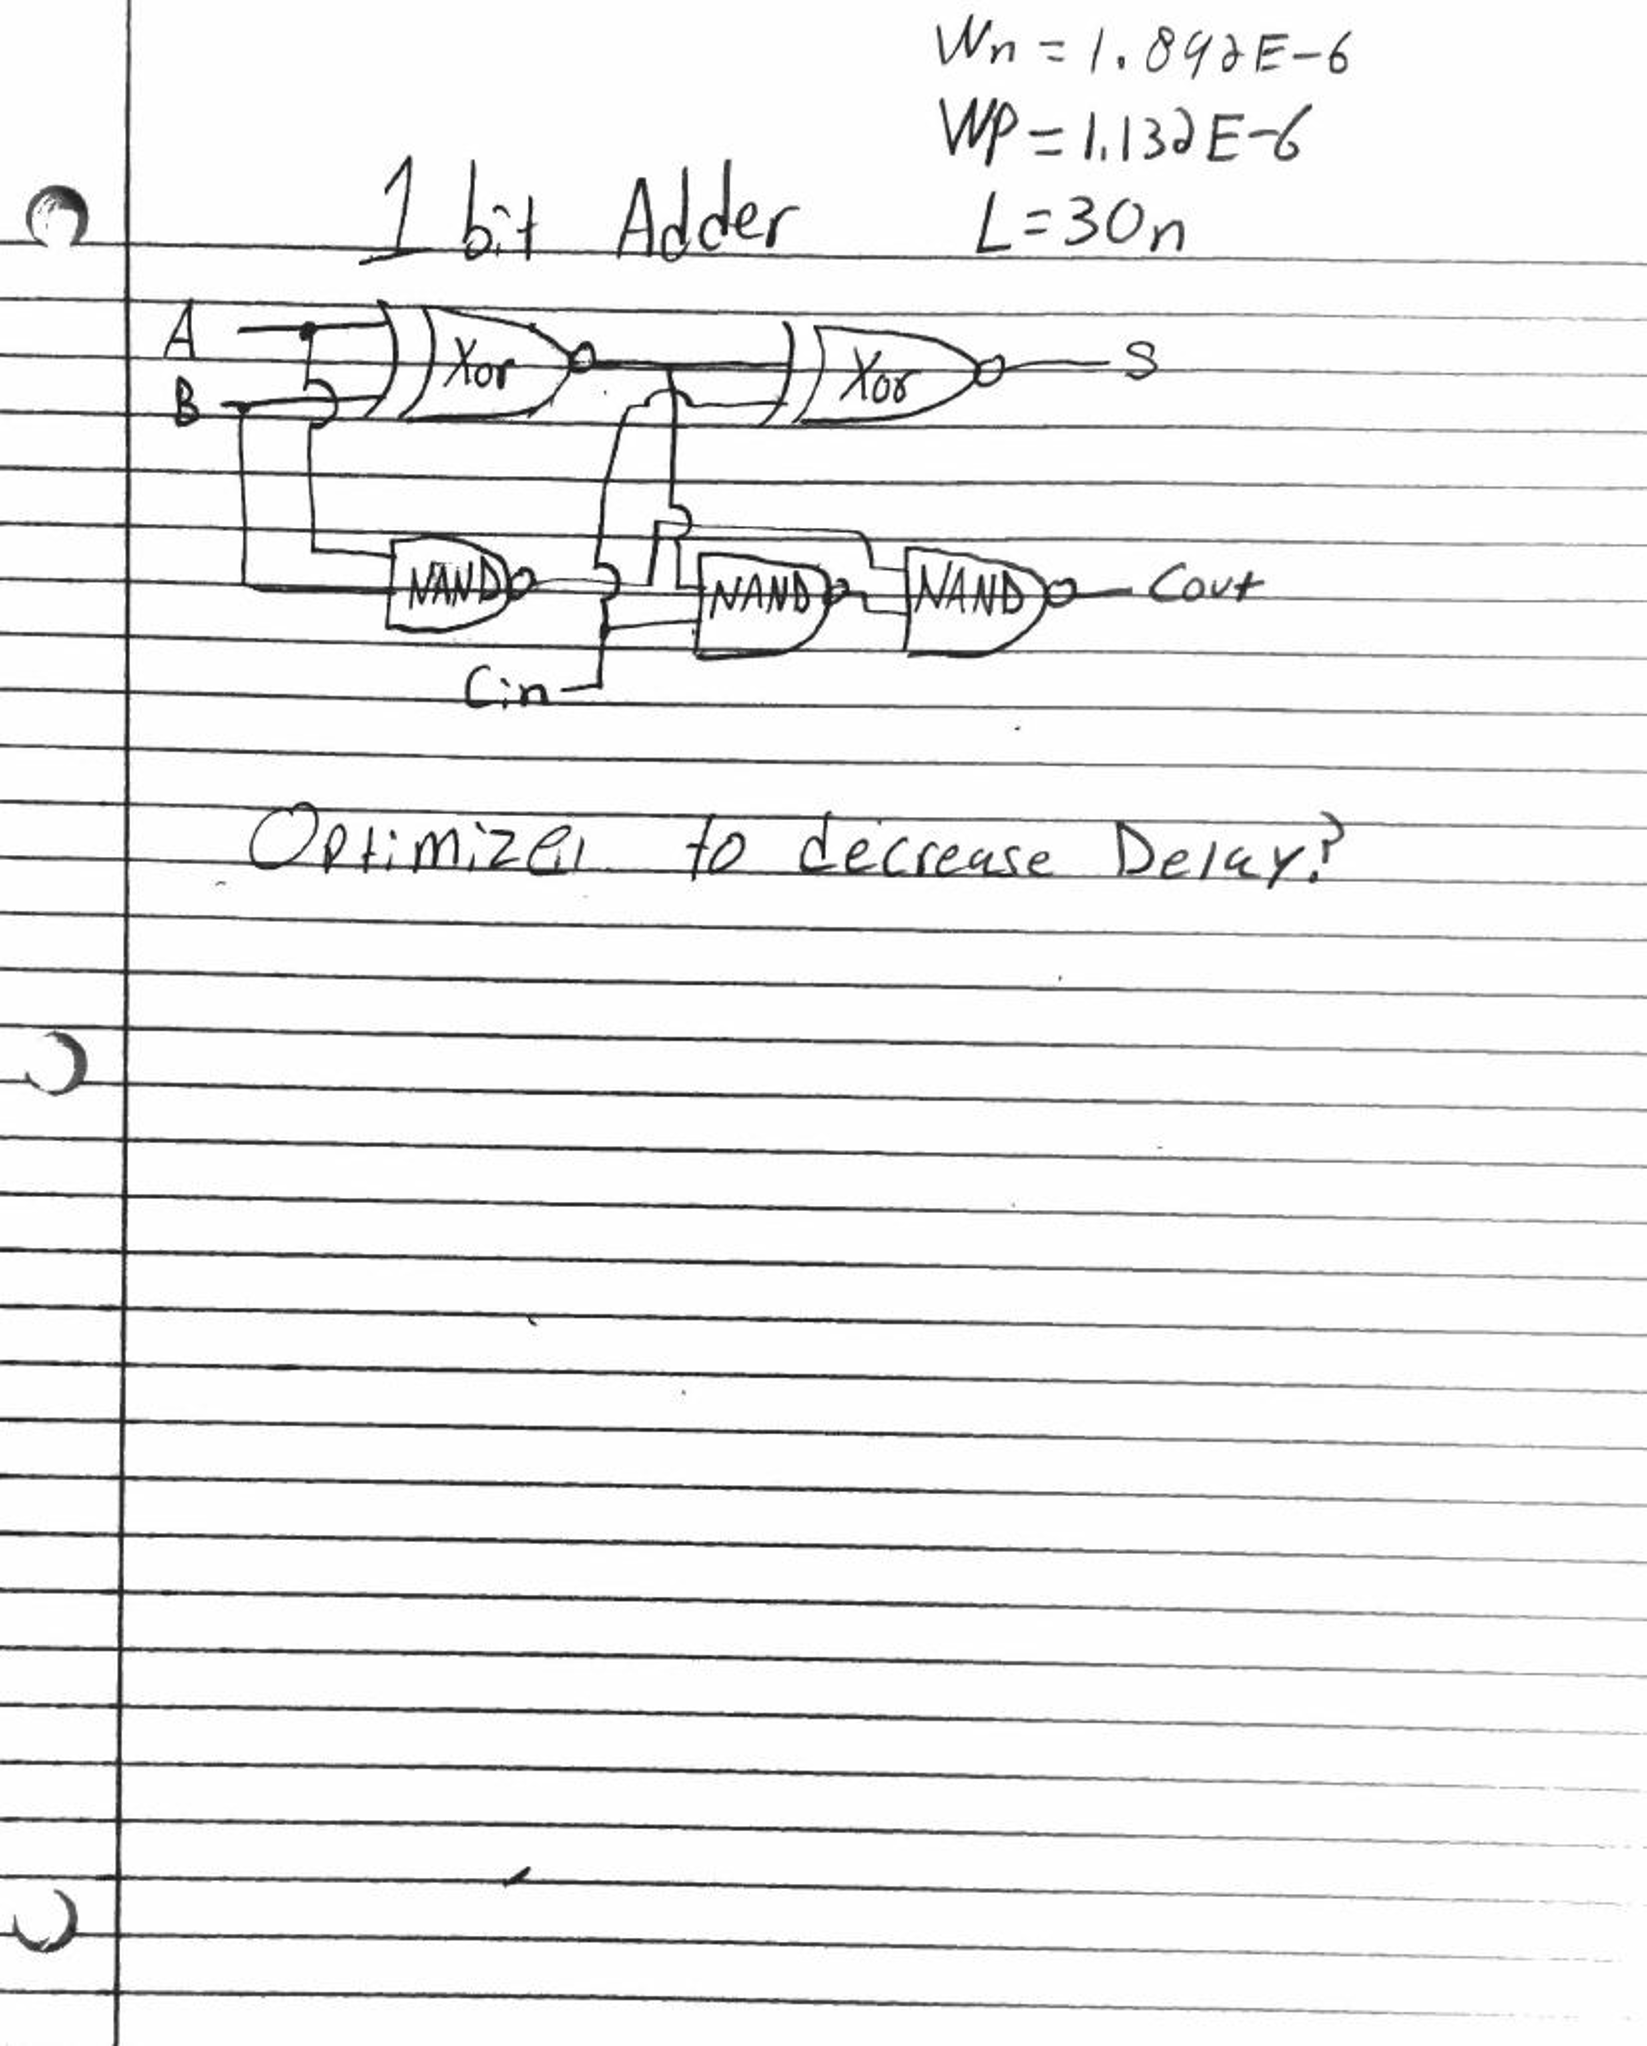 Wn = 1.892E-6
Wp = 1.132E-6
1 bit Adder L=30n
A Xor Xor S
B
NAND NAND NAND Cout
Cin
Optimizer to decrease Delay?